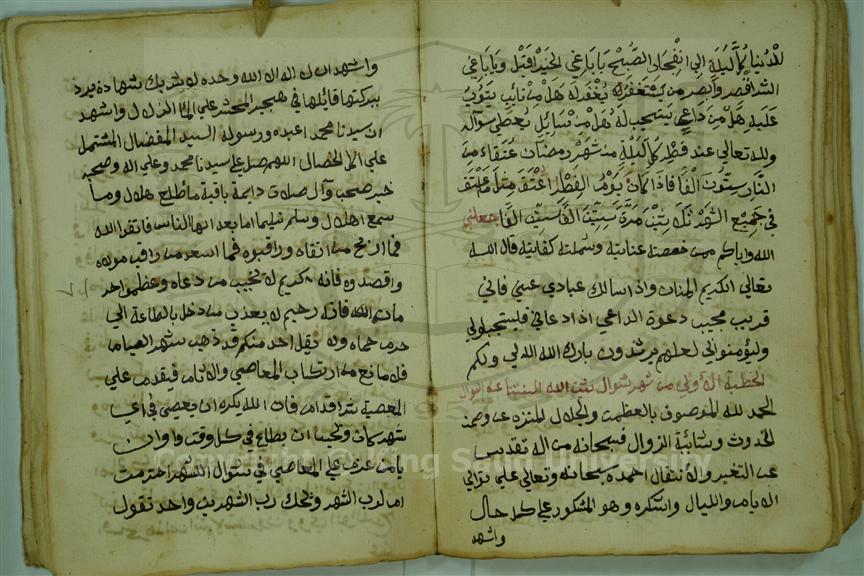 للدنيا كل ليلة الى انفجار الصبح يا باغي الخير اقبل ويا باغي
الشر اقصر وابصر من يستغفر له يغفر له هل من تايب يتوب
عليه هل من داعي يستجيب له هل من سايل يعطى سؤاله
ولله تعالى عند فطر كل ليلة من شهر رمضان عتقاء من
النار ستون الفا فاذا كان يوم الفطر اعتق مثل ما اعتق
في جميع الشهر ثلاثين مرة ستين الفا ستين الفا جعلني
الله واياكم ممن خصصته عنايته وشملته كفايته قال الله
تعالى الكريم المنان واذا سالك عبادي عني فاني
قريب اجيب دعوة الداعي اذا دعاني فليستجيبوا لي
وليؤمنوا بي لعلهم يرشدون بارك الله لي ولكم
الخطبة الاولى من شهر شوال
الحمد لله الموصوف بالعظمة والجلال المنتزه عن وصمة
الحدوث وشائبة الزوال فسبحانه من اله تقديس
عن التغير والانتقال احمده سبحانه وتعالى على توالي
الايام والليال واشكره وهو المشكور على كل حال
واشهد
واشهد ان لا اله الا الله وحده لا شريك شهادة يرد
ببركتها قائلها في هجير المحشر على الماء الزلال واشهد
ان سيدنا محمد اعبده ورسوله السيد المفضال المشتمل
على اكمل الخصال اللهم صل على سيدنا محمد وعلى اله وصحبه
خير صحب وآل صلاة دايمة باقية ما طلع هلال وما
سمع اهلال وسلم تسليما اما بعد ايها الناس فاتقوا الله
فما اربح من اتقاه وراقبوه فما اسعد من راقب مولاه
واقصدوه فانه كريم لا يخيب من دعاه وعظموا حد
مادم الله فانه رحيم لا يعذب من دخل بالطاعة الى
حرم حماه ولا يقل احد منكم قد ذهب شهر الصيام
فلا مانع من ارتكاب المعاصي والاثام فيقدم على
المعصية شر اقدام فان الله يكره ان يعصى في اي
شهر كان ويحب ان يطاع في كل وقت واوان
يا من عزم على المعاصي في شوال الشهر احترمت
ام لرب الشهر ويحك رب الشهرين واحد تقول